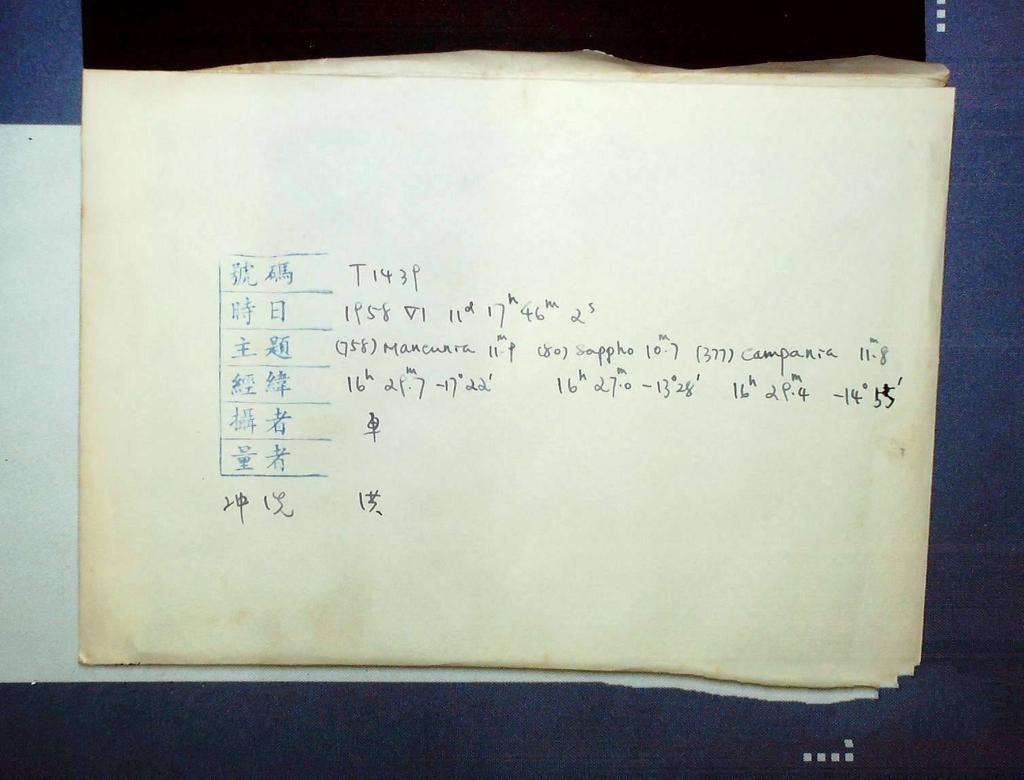 號碼 T1439
時日 1958 VI 11ᵈ 17ʰ 46ᵐ 2ˢ
主題 (758) Mancunia 11ᵐ.9 (80) Sappho 10ᵐ.7 (377) Campania 11ᵐ.8
經緯 16ʰ 29ᵐ.7 -17°22′ 16ʰ 27ᵐ.0 -13°28′ 16ʰ 29ᵐ.4 -14°55′
攝者 車
量者
冲洗 洪